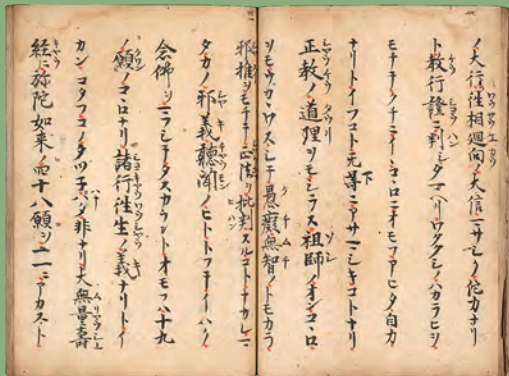 ノ大行往相廻向ノ大信ニサシノ佗力ナリ
ト教行證ニ判シタマヘリワタクシノハカラヒヲ
モチテクチニイヒコヽロニオモフアヒタ自力
ナリトイフコト无下ニアサマシキコトナリ
正教ノ道理ヲモシラス祖師ノオンコヽロ
ヲモウカヽワスシテ愚癡無智ノトモカラ
邪推ヲモチテ正法ヲ批判スルコトナカレ
タカノ邪義聽聞ノヒトトフテイハク
念佛シテタスカラントオモフハ十九
ノ願ノコヽロナリ諸行往生ノ義ナリトイ
カンコタフコノタツ子ハナハタ非ナリ大無量壽
經ニ弥陀如來ノ四十八願ヲ一一ニアカスト